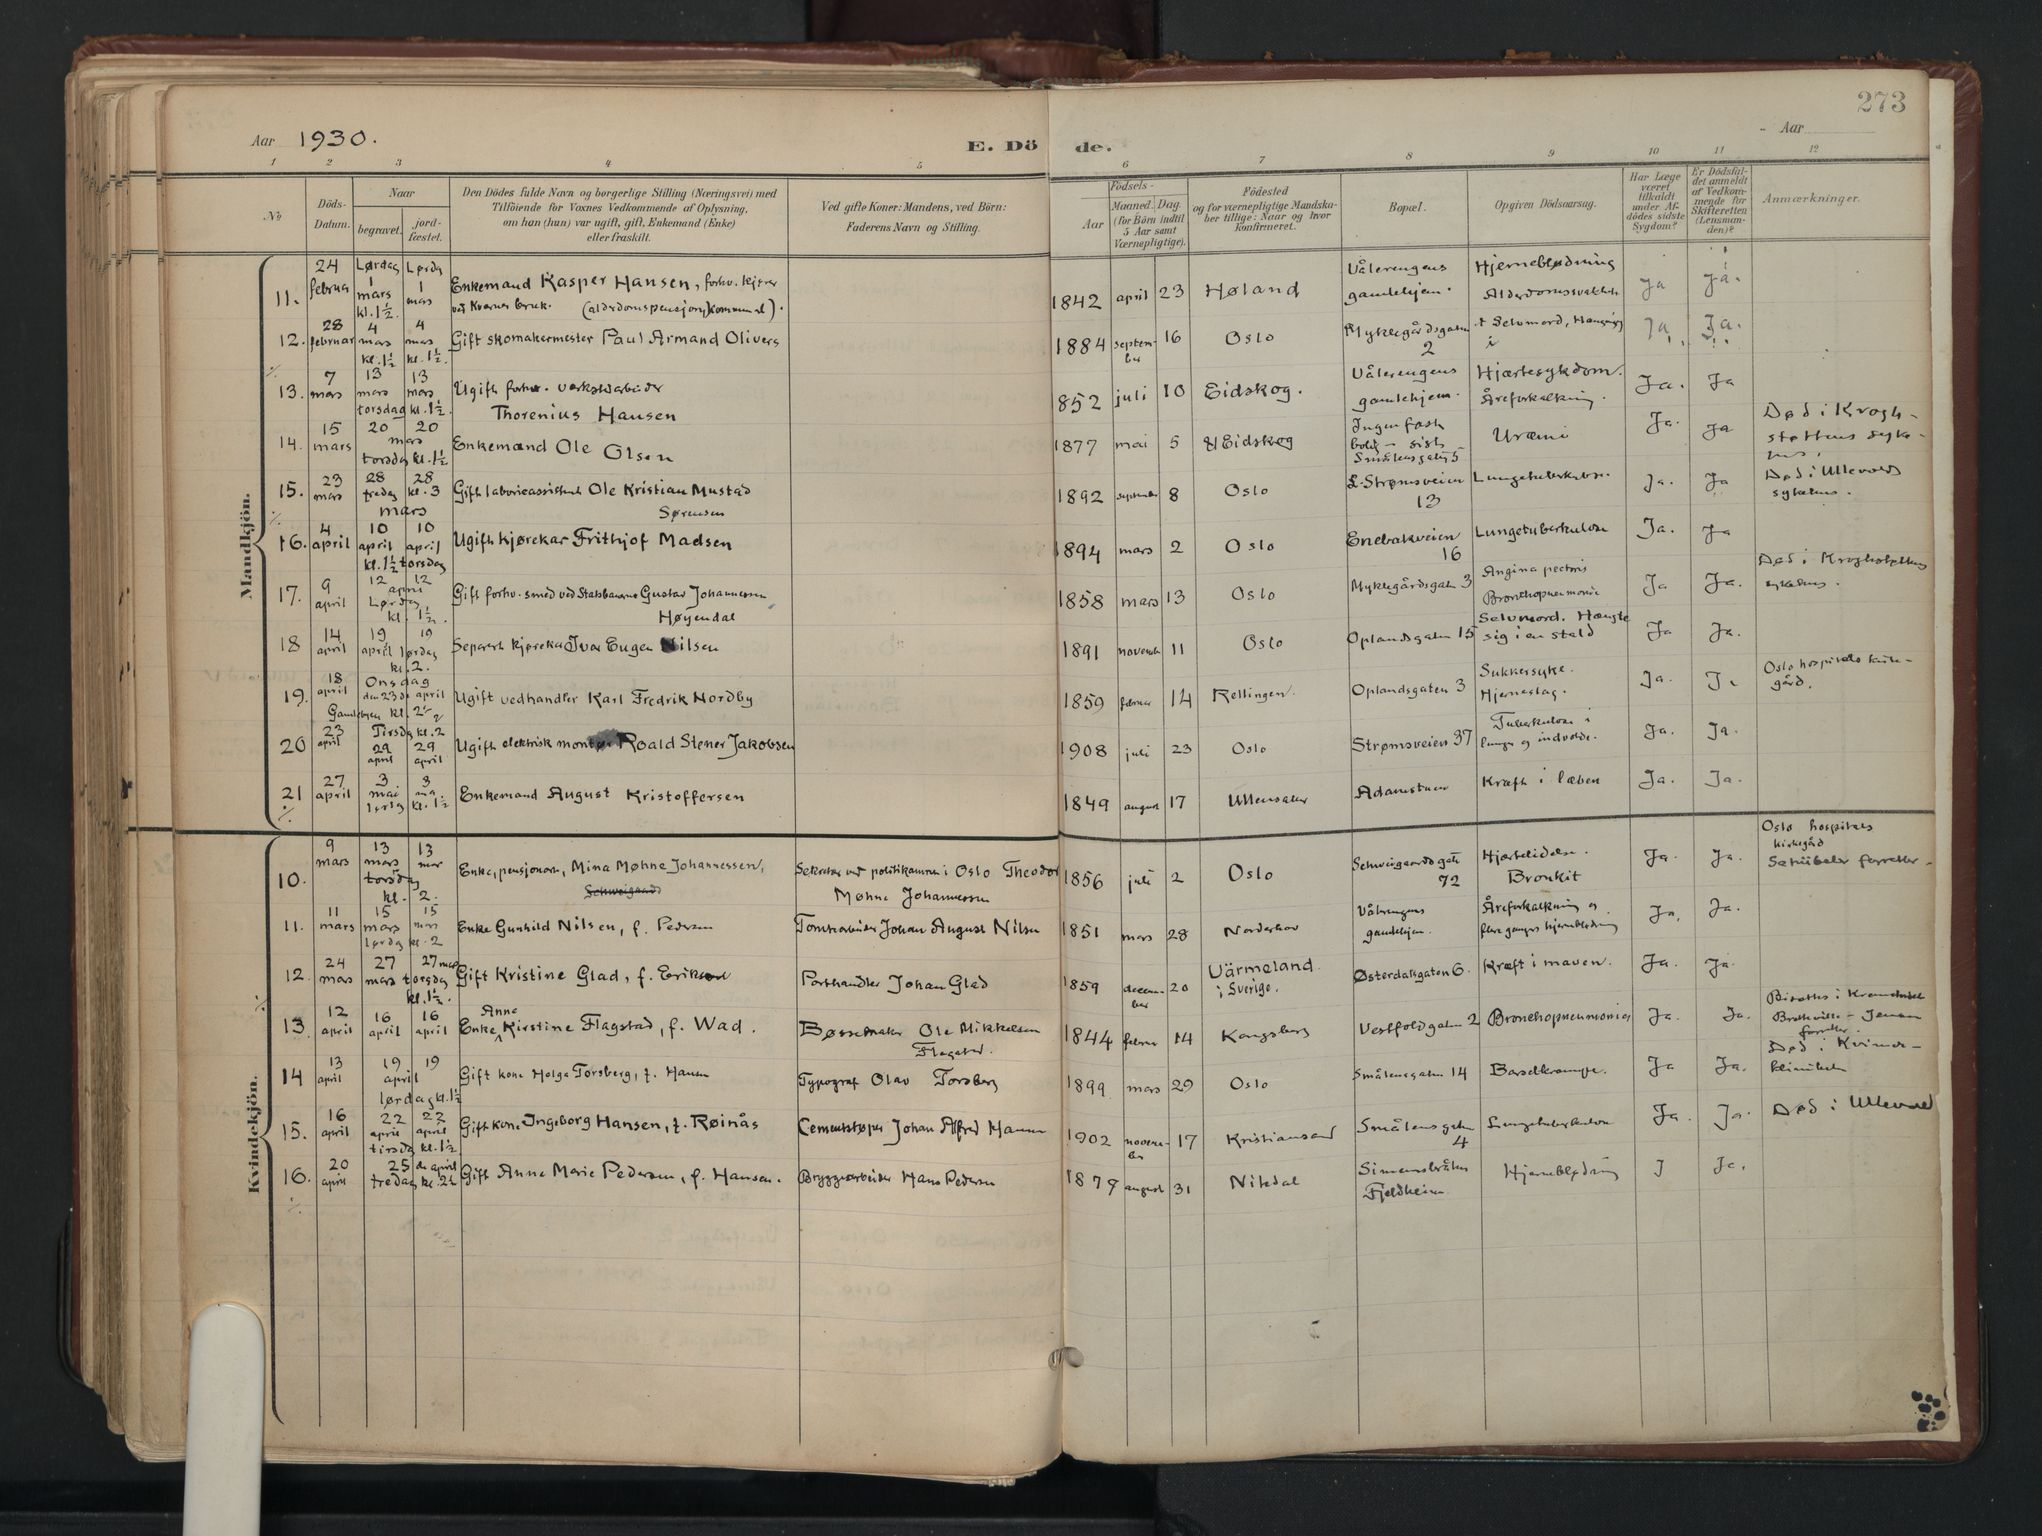 273
Aar 1930.
E. Döde.
Aar
1 2 3 4 5 6 7 8 9 10 11 12
No
Döds-
Datum.
Naar
begravet.
jord-
fæstet.
Den Dödes fulde Navn og borgerlige Stilling (Næringsvei) med
Tilföiende for Voxnes Vedkommende af Oplysning,
om han (hun) var ugift, gift, Enkemand (Enke)
eller fraskilt.
Ved gifte Koner: Mandens, ved Börn:
Faderens Navn og Stilling.
Födsels-
Aar
Maaned. Dag.
(for Börn indtil
5 Aar samt
Værnepligtige).
Födested
og for værnepligtige Mandska-
ber tillige: Naar og hvor
Konfirmeret.
Bopæl.
Opgiven Dödsaarsag.
Har Læge
været
tilkaldt
under Af-
dödes sidste
Sygdom?
Er Dödsfal-
det anmeldt
af Vedkom-
mende for
Skifteretten
(Lensman-
den)?
Anmærkninger.
Mandkjön.
11. 24 februar Lørdag 1 mars kl. 1½ Lørdag 1 mars Enkemand Kasper Hansen, forhv. kjører
ved Kværner bruk. (alderdomspensjon, kommunal). 1842 april 23 Høland Vålerengens gamlehjem. Hjerneblødning Alderdomssvakhet Ja Ja.
12. 28 februar 4 mars kl. 1½ 4 mars kl. 1½ Gift skomakermester Paul Armand Olivers 1884 september 16 Oslo Myklegårdsgaten 2 Selvmord, Ja Ja.
13. 7 mars 13 mars torsdag 13 mars kl. 1½ Ugift forhv. verkstedarbeider
Thorenius Hansen 1852 juli 10 Eidskog. Vålerengens gamlehjem. Hjærtesykdom. Åreforkalkning. Ja. Ja
14. 15 mars 20 20 mars torsdag kl. 1½ Enkemand Ole Olsen 1877 mai 5 Eidskog Ingen fast bolig – sist Smålensgaten 5 Uræmi Ja. Ja Død i Krogh-
støttens syke-
hus.
15. 23 mars 28 fredag mars 28 kl. 3 Gift laborieassistent Ole Kristian Mustad
Sørensen 1892 september 8 Oslo St. Strømsveien 13 Lungetuberkulose Ja. Ja Død i Ullevold
sykehus.
16. 4 april 10 april 10 april kl. 1½ torsdag Ugift kjørekar Frithjof Madsen 1894 mars 2 Oslo Enebakveien 16 Lungetuberkulose Ja. Ja
17. 9 april 12 12 april Lørdag kl. 1½ Gift forhv. smed ved Statsbanerne Gustav Johannessen
Høyendal 1858 mars 13 Oslo Myklegårdsgaten 3 Angina pectoris Bronchopneumonie Ja Ja. Død i Kroghstøttens
sykehus.
18 14 april 19 april 19 lørdag kl. 2. Separert kjørekar Ivar Eugen Nilsen 1891 november 11 Oslo Oplandsgaten 15 Selvmord. Hængte sig i en stald Ja Ja.
19. 18 april Onsdag den 23de april Gamlebyen kl. 2½ Ugift vedhandler Karl Fredrik Nordby 1859 februar 14 Rellingen. Oplandsgaten 3 Sukkersyke. Hjerneslag. Ja. J. Oslo hospitals kirke-
gård.
20 23 april Tirsdag kl. 2 29 april 29 april Ugift elektrisk montør Roald Stener Jakobsen 1908 juli 23 Oslo Strømsveien 37 Tuberkulose i lunge og indvolde. Ja. Ja.
21 27 april 3 mai lørdag 3 mai kl. 1½ Enkemand August Kristoffersen 1849 august 17 Ullensaker Adamstuen Kræft i læben Ja. Ja.
Kvindekjön.
10. 9 mars 13 mars 13 mars torsdag kl. 2. Enke, pensjonert, Mina Møhne Johannessen,
Schweigaard Sekretær ved politikammer i Oslo Theodor
Møhne Johannessen 1856 juli 2 Oslo Schweigaardsgate 72 Hjertelidelse. Bronkit Ja. Ja. Oslo hospitals
kirkegård
Schübeler forretter.
11. 11 mars 15 mars 15 mars lørdag kl. 2 Enke Gunhild Nilsen, f. Pedersen Tomtearbeider Johan August Nilsen 1851 mars 28 Norderhov Vålerengens gamlehjem. Åreforkalkning og flere ganger hjerneblødning Ja. Ja.
12. 24 mars 27 mars 27 mars torsdag kl. 1½. Gift Kristine Glad, f. Eriksen Porthandler Johan Glad 1859 december 20 Värmeland i Sverige. Østerdalsgaten 6. Kræft i maven. Ja. Ja.
13. 12 april 16 april 16 april Enke Anne Kirstine Flagstad, f. Wad. Bøssemaker Ole Mikkelsen
Flagstad. 1844 februar 14 Kongsberg Vestfoldgaten 2 Bronchopneumonie Ja. Ja.
14 13 april 19 april 19 lørdag kl. 1½ Gift kone Helga Torsberg, f. Hansen Typograf Olav Torsberg 1899 mars 29 Oslo Smålensgaten 14 Barselkrampe. Ja Ja. Død i Kvinde-
klinikken
15. 16 april 22 april 22 april tirsdag kl. 1½ Gift kone Ingeborg Hansen, f. Røinås Cementstøper Johan Alfred Hansen 1902 november 17 Kristiansand Smålensgaten 4 Lungetuberkulose Ja. Ja. Død i Ullevoll
16. 20 april 25 de april fredag kl. 2½ Gift Anne Marie Pedersen, f. Hansen. Bryggearbeider Hans Pedersen 1879 august 31 Nitedal Simensbråten Fjeldheim Hjerneblødning J Ja.